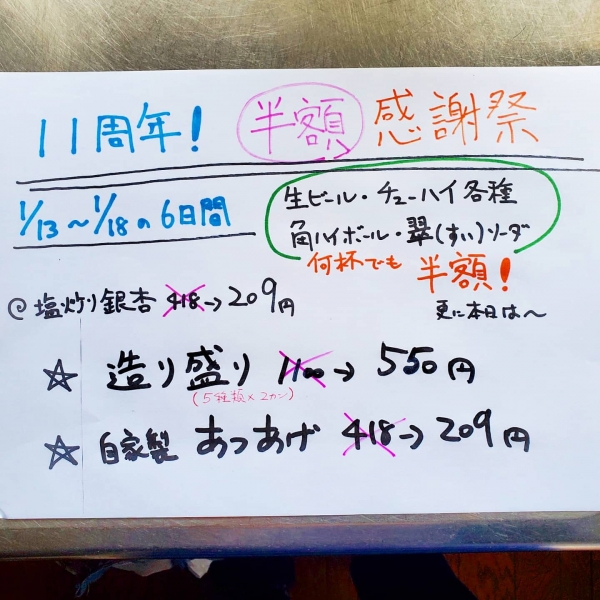 11周年! 半額 感謝祭
1/13〜1/18の6日間
生ビール・チューハイ各種
角ハイボール・翠(すい)ソーダ
何杯でも 半額!
更に本日は〜
@塩炒り銀杏 418→209円
☆ 造り盛り 1100→550円
(5種類×2カン)
☆ 自家製 あつあげ 418→209円